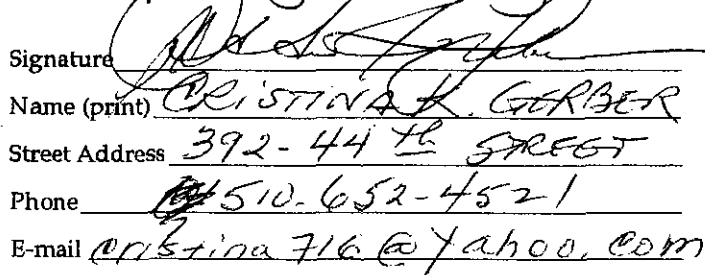 Signature
Name (print) CRISTINA K. GERBER
Street Address 392-44th STREET
Phone 510-652-4521
E-mail cristina716@yahoo.com